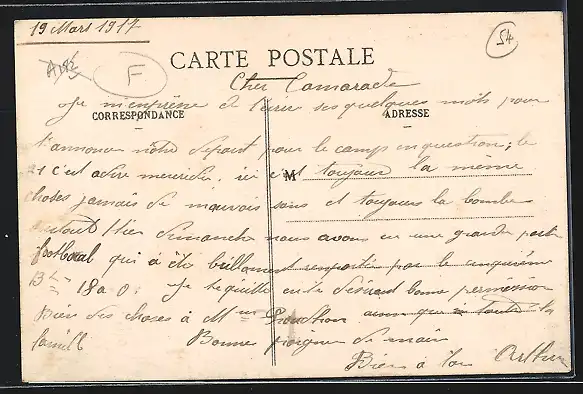 19 Mars 1917
54
F
CARTE POSTALE
Cher Camarade
Je m'enprèsse à t'ecrire ses quelques mots pour
CORRESPONDANCE
ADRESSE
t'annoncer nôtre depart pour le camp en question; le
21 c'est adire mercredi. ici c'est toujours la même
M
choses jamais de mauvais sans et toujours la bombe
surtout Hier Dimanche nous avons eu une grande partie
footbaal qui à été brillament remportée par le cinquième
B on 18 a 0. Je te quitte en te désirant bonne permission
Bien des choses à M me aussi que a toute ta
famille Bonne poignée de main
Bien à toi Arthur